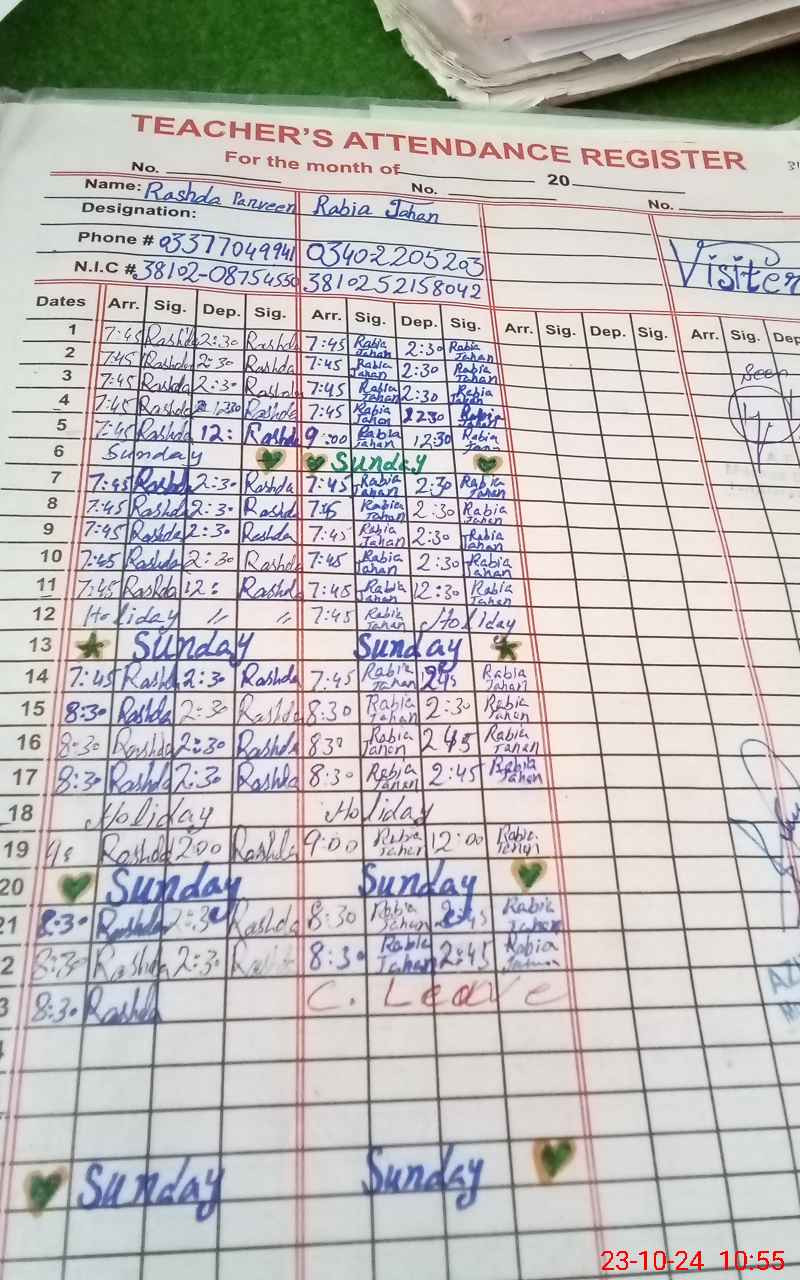 TEACHER'S ATTENDANCE REGISTER
31
For the month of 20
No. No. No.
Name: Rashda Parveen Rabia Jahan
Designation:
Visiter
Phone # 03377049941 03402205203
N.I.C # 38102-08754550 3810252158042
Dates Arr. Sig. Dep. Sig. Arr. Sig. Dep. Sig. Arr. Sig. Dep. Sig. Arr. Sig. Dep
1 7:45 Rashda 2:30 Rashda 7:45 Rabia Jahan 2:30 Rabia Jahan
2 7:45 Rashda 2:30 Rashda 7:45 Rabia Jahan 2:30 Rabia Jahan
Seen
3 7:45 Rashda 2:30 Rashda 7:45 Rabia Jahan 2:30 Rabia Jahan
4 7:45 Rashda 12:30 Rashda 7:45 Rabia Jahan 12:30 Rabia Jahan
5 7:45 Rashda 12: Rashda 9:00 Rabia Jahan 12:30 Rabia Jahan
6 Sunday Sunday
7 7:45 Rashda 2:30 Rashda 7:45 Rabia Jahan 2:30 Rabia Jahan
8 7:45 Rashda 2:30 Rashda 7:45 Rabia Jahan 2:30 Rabia Jahan
9 7:45 Rashda 2:30 Rashda 7:45 Rabia Jahan 2:30 Rabia Jahan
10 7:45 Rashda 2:30 Rashda 7:45 Rabia Jahan 2:30 Rabia Jahan
11 7:45 Rashda 12: Rashda 7:45 Rabia Jahan 12:30 Rabia Jahan
12 Holiday // // 7:45 Rabia Jahan Holiday
13 Sunday Sunday
14 7:45 Rashda 2:30 Rashda 7:45 Rabia Jahan Rabia Jahan
15 8:30 Rashda 2:30 Rashda 8:30 Rabia Jahan 2:30 Rabia Jahan
16 8:30 Rashda 2:30 Rashda 830 Rabia Jahan 2 45 Rabia Jahan
17 8:30 Rashda 2:30 Rashda 8:30 Rabia Jahan 2:45 Rabia Jahan
18 Holiday Holiday
19 Rashda 2:00 Rashda 9:00 Rabia Jahan 12:00 Rabia Jahan
20 Sunday Sunday
21 8:30 Rashda 2:30 Rashda 8:30 Rabia Jahan 2:45 Rabia Jahan
2 8:30 Rashda 2:30 8:30 Rabia Jahan 2:45 Rabia Jahan
3 8:30 Rashda C. Leave
Sunday Sunday
23-10-24 10:55